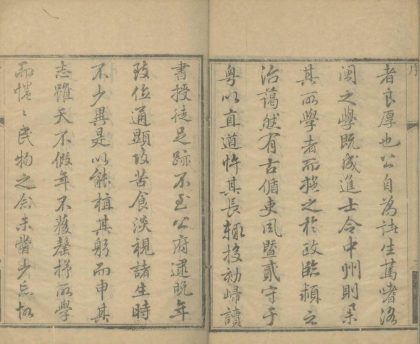 序
者良厚也公自為諸生篤嗜洛
閩之學既成進士令中州則舉
其所學者而施之於政臨潁之
治藹然有古循吏風暨貳守于
粵以直道忤其長輒投劾歸讀
書授徒足跡不至公府逮晚年
致位通顯攻苦食淡視諸生時
不少異是以能植其躬而申其
志雖天不假年不獲罄抒所學
而惓〻民物之念未嘗少忘故